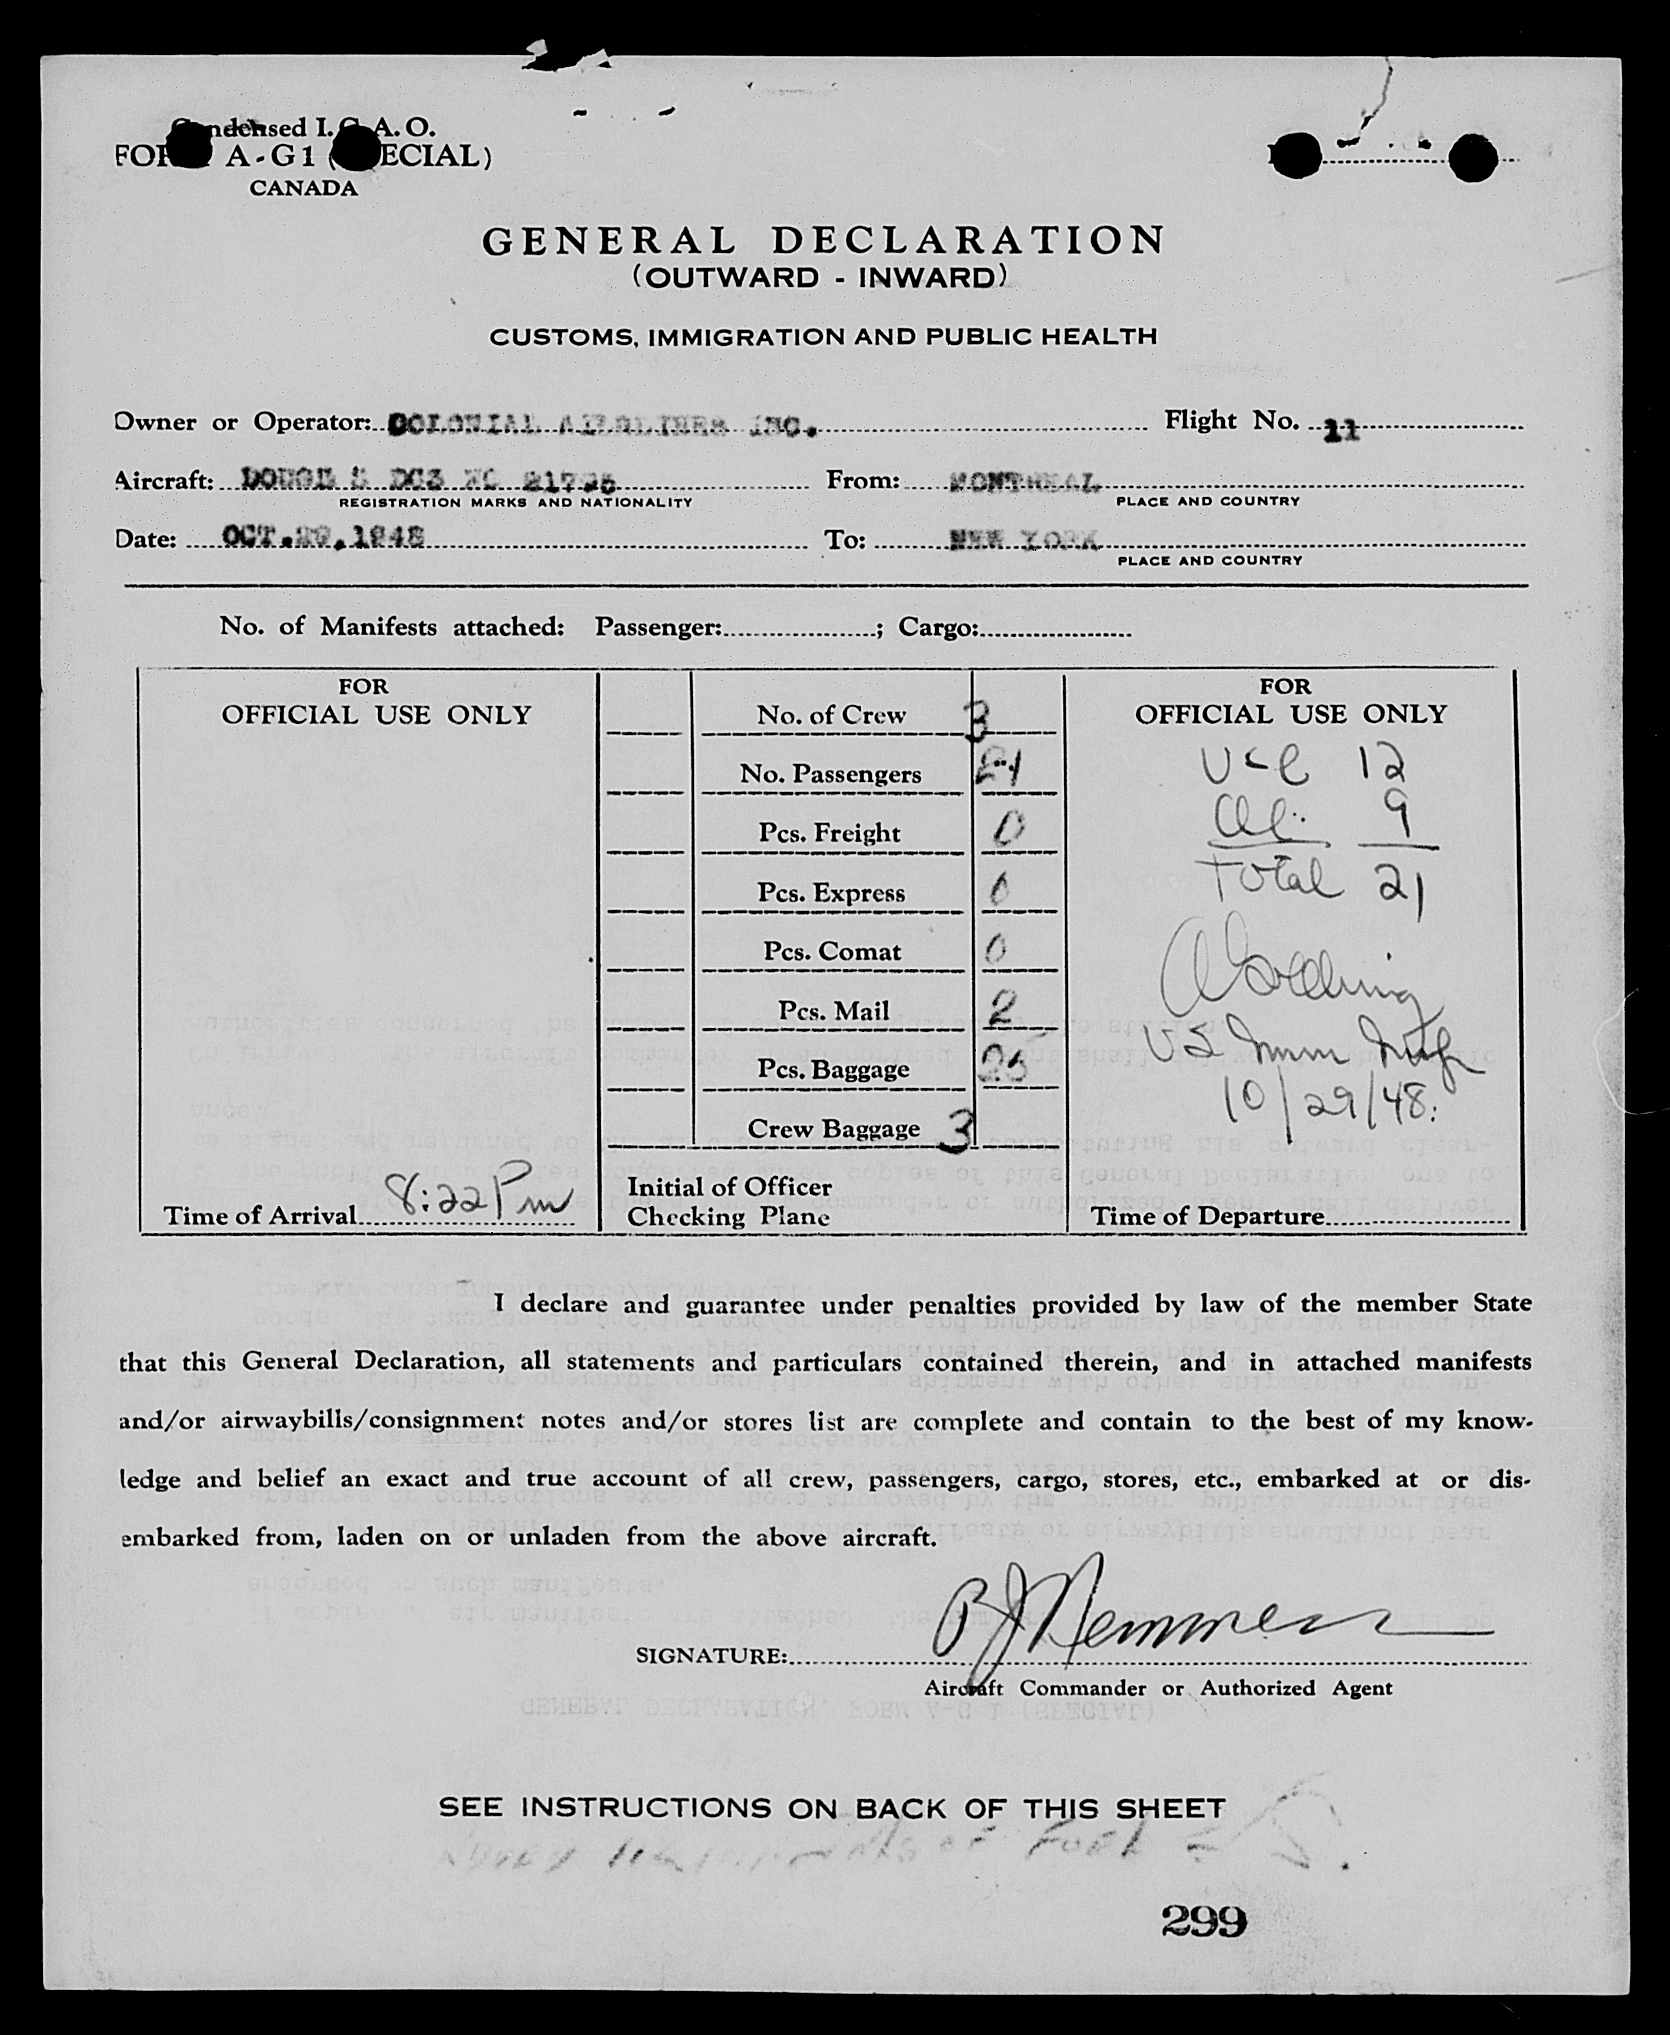 Condensed I.C.A.O.
FORM A-G1 (SPECIAL)
CANADA
GENERAL DECLARATION
(OUTWARD - INWARD)
CUSTOMS, IMMIGRATION AND PUBLIC HEALTH
Owner or Operator: COLONIAL AIRLINES INC. Flight No. 11
Aircraft: DOUGLAS DC3 NC 21795 From: MONTREAL
REGISTRATION MARKS AND NATIONALITY PLACE AND COUNTRY
Date: OCT.29,1948 To: NEW YORK
PLACE AND COUNTRY
No. of Manifests attached: Passenger: ; Cargo:
FOR
OFFICIAL USE ONLY
Time of Arrival 8:22 Pm
No. of Crew 3
No. Passengers 21
Pcs. Freight 0
Pcs. Express 0
Pcs. Comat 0
Pcs. Mail 2
Pcs. Baggage 25
Crew Baggage 3
Initial of Officer
Checking Plane
FOR
OFFICIAL USE ONLY
USC 12
Al. 9
Total 21
US Imm Insp
10/29/48.
Time of Departure
I declare and guarantee under penalties provided by law of the member State
that this General Declaration, all statements and particulars contained therein, and in attached manifests
and/or airwaybills/consignment notes and/or stores list are complete and contain to the best of my know-
ledge and belief an exact and true account of all crew, passengers, cargo, stores, etc., embarked at or dis-
embarked from, laden on or unladen from the above aircraft.
SIGNATURE:
Aircraft Commander or Authorized Agent
SEE INSTRUCTIONS ON BACK OF THIS SHEET
OF FUEL
299